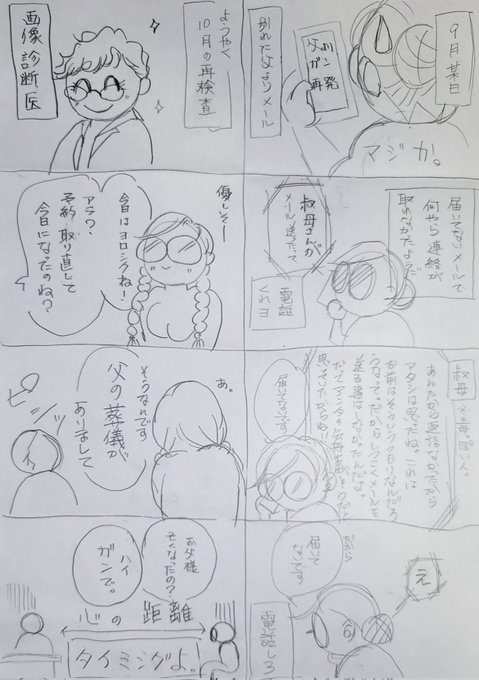 9月某日
別れた父よりメール
父より
ガン
再発
マジか。
届いてないメールで
何やら連絡が
取れなかったようだ
叔母さんが
メール送ったって
電話
くれヨ
叔母
※毒っぽい人。
あんたから返信なかったから
アタシは思ったね。これは
お前はそのつもりなんだろ
うなって。だからしつこくメールを
送る事はしなかったんだよ。
だってアンタのお母さんがそうだと
思っていたからね!!
届いてないです。
え
だから
届いて
ないです。
電話しろ
ようやく
10月の再検査
画像診断医
優しそー
今日はヨロシクね!
アラ?
予約取り直して
今日になったのね?
あ。
そうなんです
父の葬儀が
ありまして
ピシッ
お父様
亡くなったの?
ハイ
ガンで。
心の距離
タイミングよ。